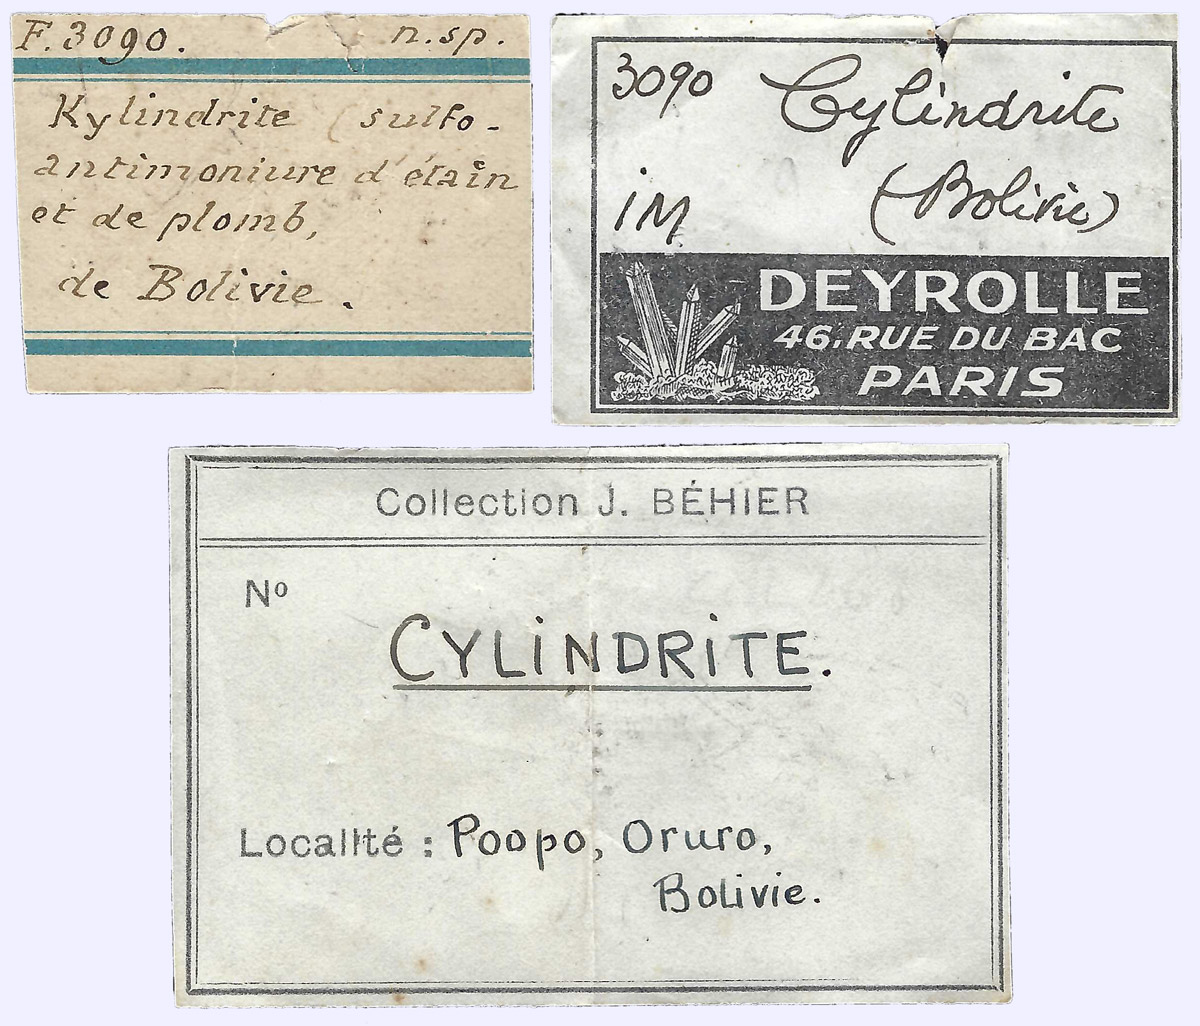 F.3090. n.sp.
Kylindrite (sulfo-
antimoniure d'étain
et de plomb,
de Bolivie.
3090 Cylindrite
(Bolivie)
1M
DEYROLLE
46, RUE DU BAC
PARIS
Collection J. BÉHIER
Nº
CYLINDRITE.
Localité : Poopo, Oruro,
Bolivie.